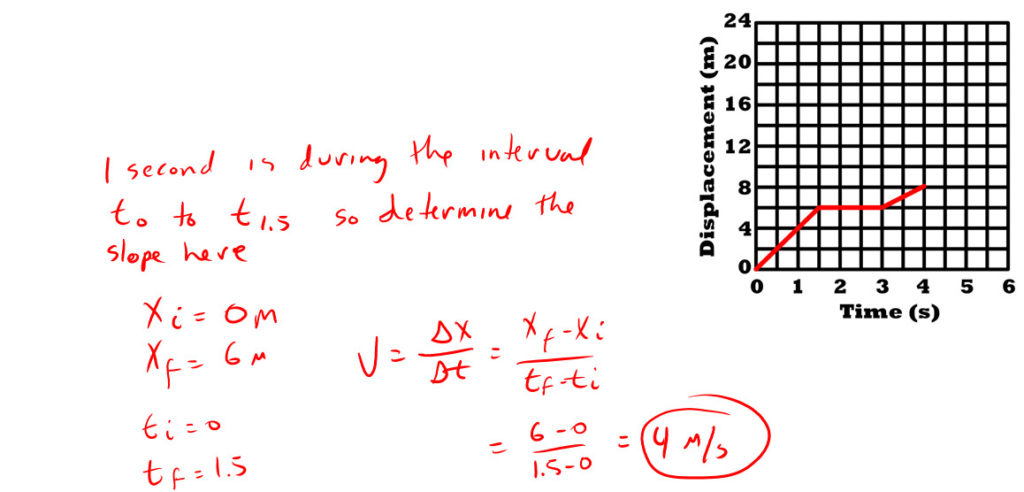 1 second is during the interval
t₀ to t₁.₅ so determine the
slope here
Xi = 0m
Xf = 6m
ti = 0
tf = 1.5
V = ΔX/Δt = Xf-Xi/tf-ti
= 6-0/1.5-0 = 4 m/s
24
20
16
12
8
4
0
Displacement (m)
0 1 2 3 4 5 6
Time (s)